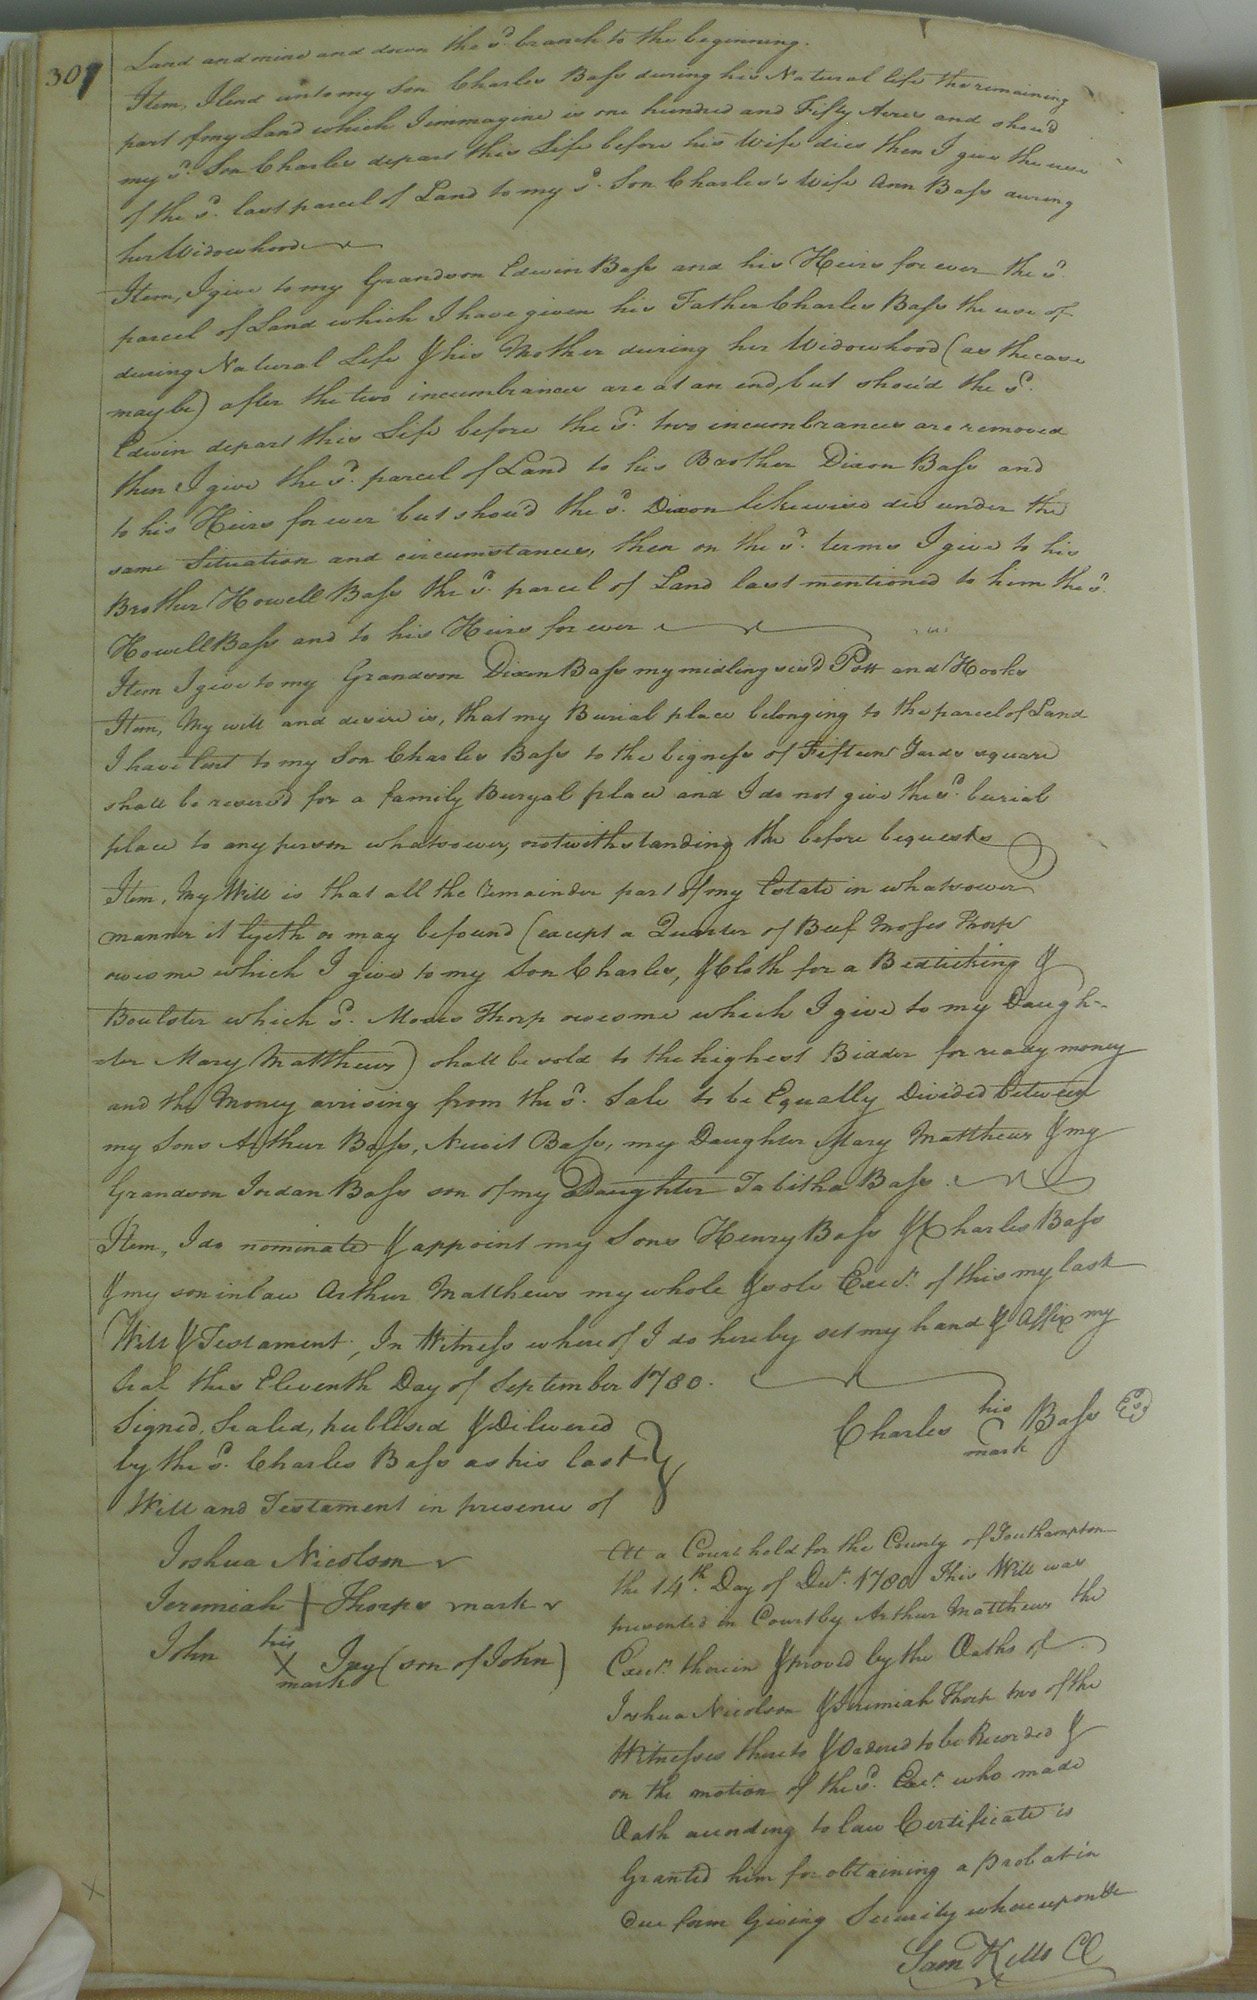 307
Land and mine and down the sd. branch to the beginning.
Item, I lend unto my son Charles Bass during his Natural life the remaining
part of my Land which I immagine is one hundred and Fifty Acres and shou'd
my sd. Son Charles depart this Life before his Wife dies then I give the use
of the sd. last parcel of Land to my sd. Son Charles's Wife Ann Bass during
her Widowhood
Item, I give to my Grandson Edwin Bass and his Heirs for ever the sd.
parcel of Land which I have given his Father Charles Bass the use of
during Natural Life & his Mother during her Widowhood (as the case
may be) after the two incumbrances are at an end, but shou'd the sd.
Edwin depart this Life before the sd. two incumbrances are removed
then I give the sd. parcel of Land to his Brother Dixon Bass and
to his Heirs for ever but shou'd the sd. Dixon likewise die under the
same Situation and circumstances, then on the sd. terms I give to his
Brother Howell Bass the sd. parcel of Land last mentioned to him the sd.
Howell Bass and to his Heirs for ever
Item I give to my Grandson Dixon Bass my midling sis'd Pott and Hooks
Item, My will and desire is, that my Burial place belonging to the parcel of Land
I have lent to my Son Charles Bass to the bigness of Fifteen Yards square
shall be reserv'd for a family Buryal place and I do not give the sd. burial
place to any person whatsoever, notwithstanding the before bequests
Item, My Will is that all the remainder part of my Estate in whatsoever
manner it lyeth or may be found (except a Quarter of Beef Moses Thorp
owes me which I give to my Son Charles, & Cloth for a Bedticking &
Boulster which sd. Moses Thorp owes me which I give to my Daugh-
-ter Mary Matthews) shall be sold to the highest Bidder for ready money
and the Money arrising from the sd. Sale to be Equally Divided between
my Sons Arthur Bass, Newit Bass, my Daughter Mary Matthews & my
Grandson Jordan Bass son of my Daughter Tabitha Bass.
Item, I do nominate & appoint my Sons Henry Bass & Charles Bass
& my son in law Arthur Matthews my whole & sole Exec.r of this my last
Will & Testament, In Witness whereof I do hereby set my hand & Affix my
Seal this Eleventh Day of September 1780.
Signed, Sealed, publised & Dilivered
by the sd. Charles Bass as his last
Will and Testament in presence of
Charles his mark Bass
Joshua Nicolson
Jeremiah Thorps mark
John his X mark Ivy (son of John)
At a Court held for the County of Southampton
the 14th. Day of Decr. 1780 This Will was
presented in Court by Arthur Matthews the
Exec.r therein & proved by the Oaths of
Joshua Nicolson & Jeremiah Thorp two of the
Witnesses thereto & Ordered to be Recorded &
on the motion of the sd. Exec.r who made
Oath according to law Certificate is
Granted him for obtaining a probat in
due form Giving Security whereupon &c
Sam Kello CC
X